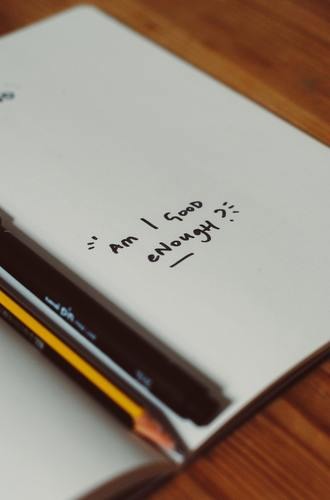 Am I Good
enough?